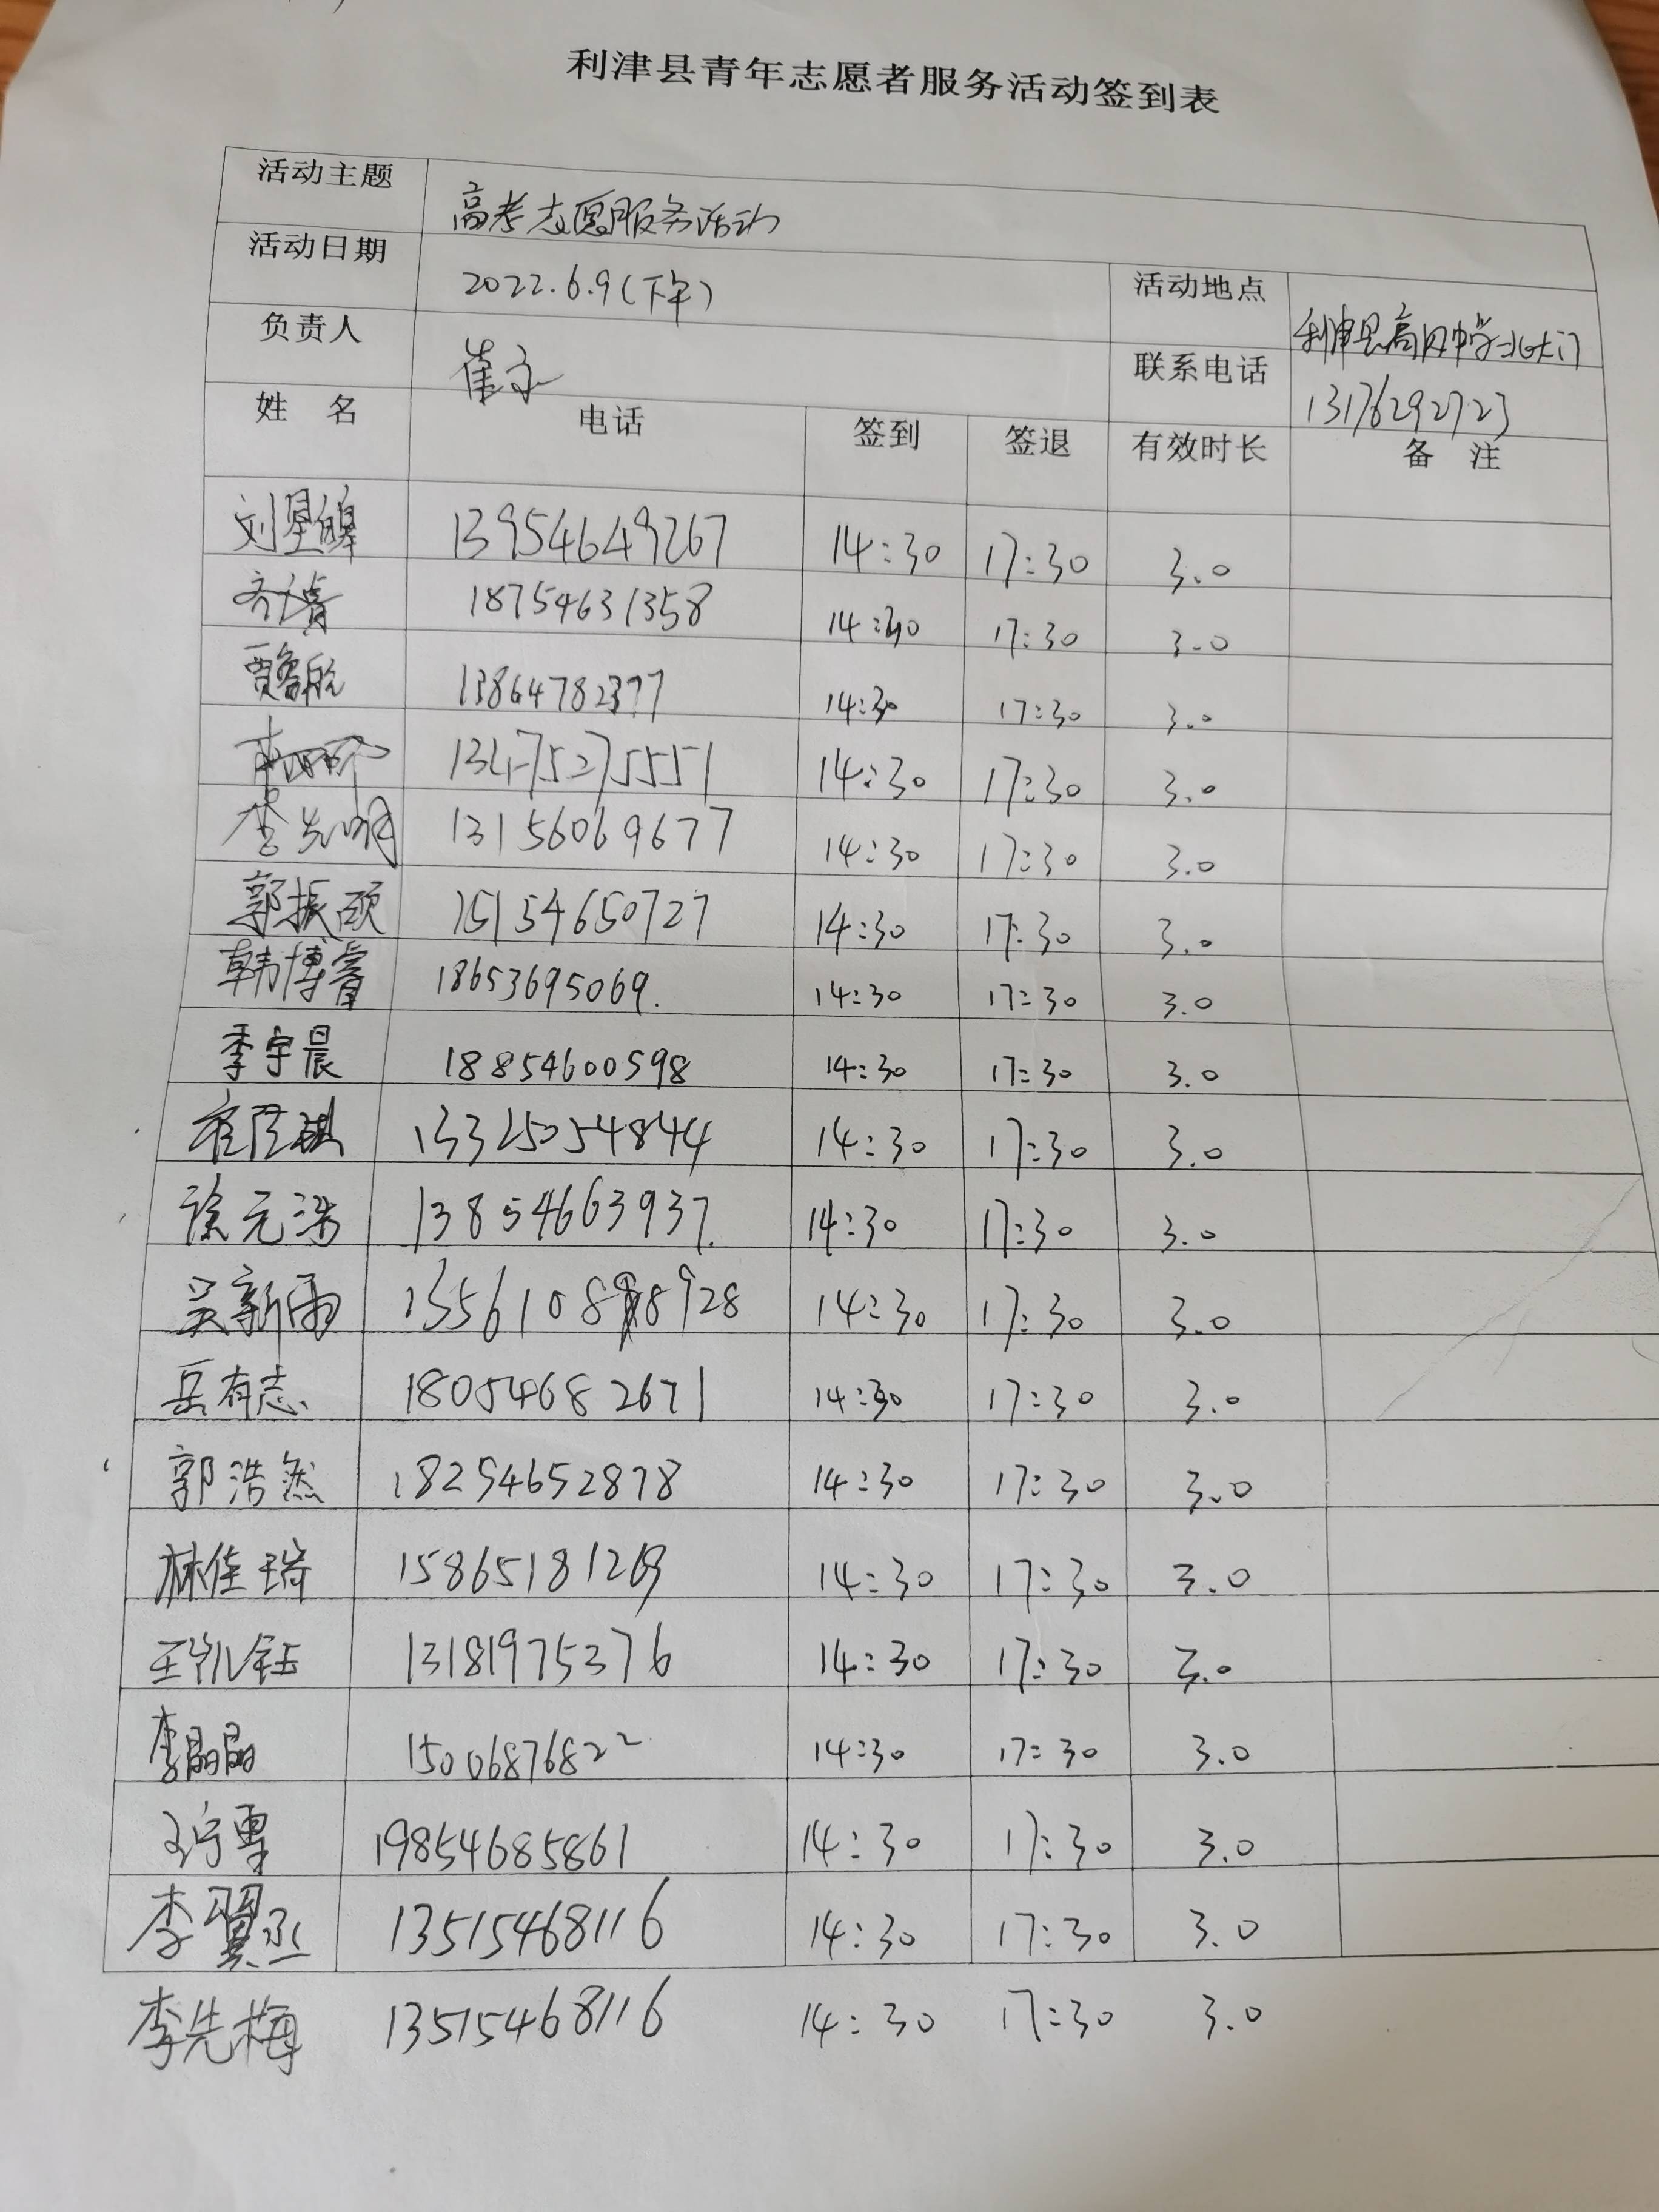 利津县青年志愿者服务活动签到表
活动主题 高考志愿服务活动
活动日期 2022.6.9(下午) 活动地点 利津县高级中学北大门
负责人 崔 联系电话 13176292723
姓 名 电话 签到 签退 有效时长 备 注
刘星皞 13954649267 14:30 17:30 3.0
18754631358 14:30 17:30 3.0
贾鲁航 13864782377 14:30 17:30 3.0
13475275551 14:30 17:30 3.0
李先明 13156069677 14:30 17:30 3.0
郭振硕 15154650727 14:30 17:30 3.0
韩博睿 18653695069. 14:30 17:30 3.0
季宇晨 18854600598 14:30 17:30 3.0
13325054844 14:30 17:30 3.0
徐元浩 13854663937. 14:30 17:30 3.0
吴新雨 14:30 17:30 3.0
岳有志 18054682671 14:30 17:30 3.0
郭浩然 18254652878 14:30 17:30 3.0
林佳瑞 15865181269 14:30 17:30 3.0
王凯钰 13181975376 14:30 17:30 3.0
李晶晶 15006876822 14:30 17:30 3.0
19854685861 14:30 17:30 3.0
李翼丞 13515468116 14:30 17:30 3.0
李先梅 13515468116 14:30 17:30 3.0